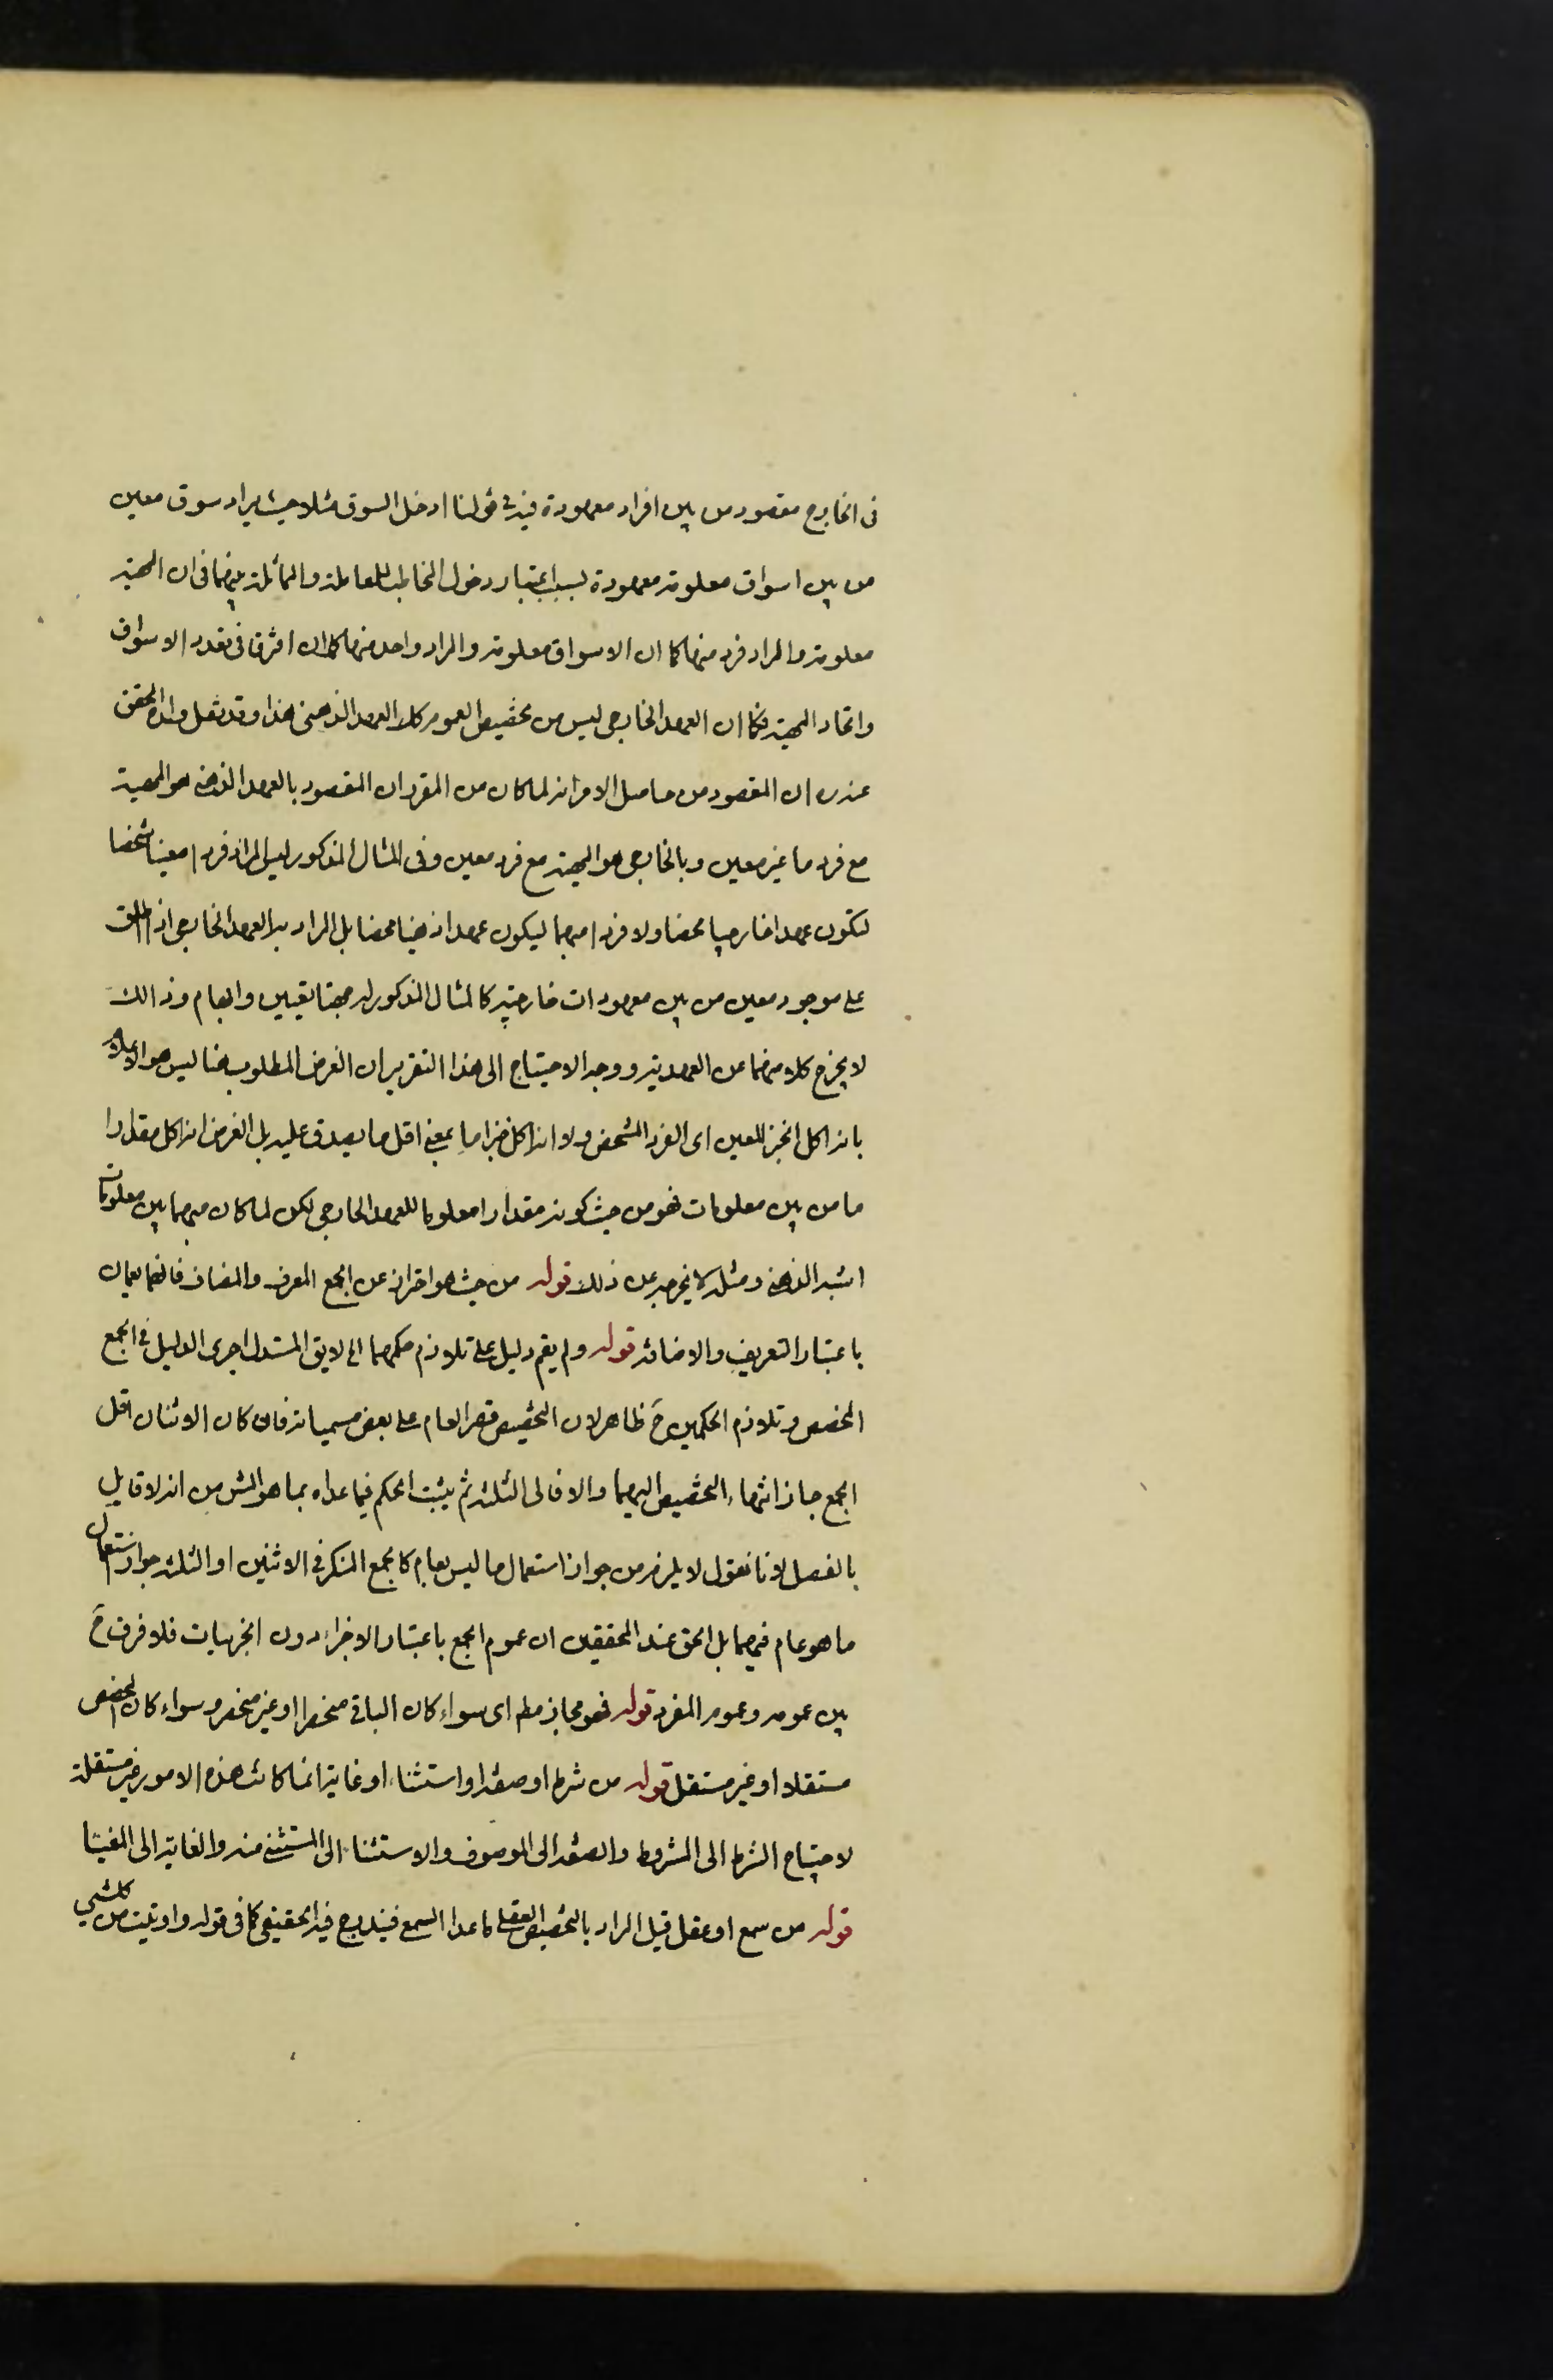 فى الخارج مقصود من بين افراد معهودة فيه فى قولنا ادخل السوق مثلا حيث يراد سوق معين
من بين اسواق معلومة معهودة لسبب اعتبار دخول المخاطب للمعاملة والمماثلة بينهما فى ان المهية
معلومة والمراد فرد منها كما ان الاسواق معلومة والمراد واحد منها كما ان افترقا فى تعدد الاسواق
واتحاد المهية فكما ان العهد الخارجى ليس من تخصيص العموم كك العهد الذهنى هذا وقد نقل والده المحقق
عنه ره ان المقصود من حاصل الامر انه لما كان من المقرر ان المقصود بالعهد الذهنى هو المهية
مع فرد ما غير معين وبالخارجى هو المهية مع فرد معين وفى المثال المذكور ليس المراد فردا معينا شخصا
لتكون عهدا خارجيا محضا ولا فردا مبهما ليكون عهدا ذهنيا محضا بل المراد به العهد الخارجى اذ اطلق
على موجود معين من بين معهودات خارجية كالمثال المذكور له جهتا تعيين وابهام وذالك
لا يخرج كلا منهما عن العهدية ووجه الاحتياج الى هذا التقرير ان الغرض المطلوب هنا ليس هو الاعلام
بانه اكل الخبز المعين اى الفرد المشخص ولا انه اكل خبزا ما بمعنى اقل ما يصدق عليه بل الغرض انه اكل مقدارا
ما من بين معلومات فهو من حيث كونه مقدارا معلوما للعهد الخارجى لكن لما كان مبهما بين معلومات
اشبه الذهنى ومثله لا يخرجه عن ذلك قوله من حيث هو احتراز عن الجمع المعرف والمضاف فانهما يعمان
باعتبار التعريف والاضافة قوله ولم يقم دليل على تلازم حكمهما اه لا يق المستدل اجرى الدليل فى الجمع
المخصص وتلازم الحكمين ح ظاهر لان التخصيص قصر العام على بعض مسمياته فان كان الاثنان اقل
الجمع جاز انتهاء التخصيص اليهما والا فالى الثلثة ثم يثبت الحكم فيما عداه بما هو المش من انه لا قايل
بالفصل لانا نقول لا يلزم من جواز استعمال ما ليس بعام كالجمع المنكر فى الاثنين او الثلثة جواز استعمال
ما هو عام فيهما بل الحق عند المحققين ان عموم الجمع باعتبار الاجزاء دون الجزئيات فلا فرق ح
بين عمومه وعموم المفرد قوله فهو مجاز مطم اى سواء كان الباقى منحصرا او غير منحصر وسواء كان المخصص
مستقلا او غير مستقل قوله من شرط او صفة او استثناء او غاية انما كانت هذه الامور غير مستقلة
لاحتياج الشرط الى المشروط والصفة الى الموصوف والاستثناء الى المستثنى منه والغاية الى المغيا
قوله من سمع او عقل قيل المراد بالتخصيص العقلى ما عدا السمع فيندرج فيه الحقيقى كما فى قوله واوتيت من كلشىء